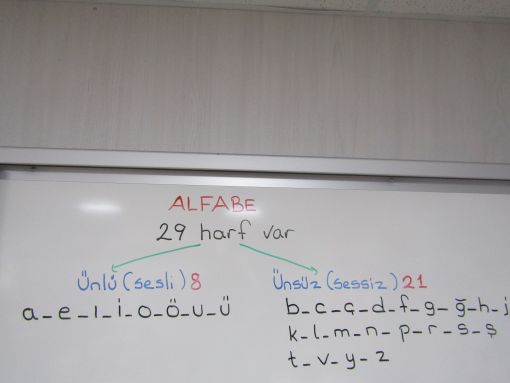 ALFABE
29 harf var
Ünlü (sesli) 8
a_e_ı_i_o_ö_u_ü
Ünsüz (sessiz) 21
b_c_ç_d_f_g_ğ_h_j
k_l_m_n_p_r_s_ş
t_v_y_z